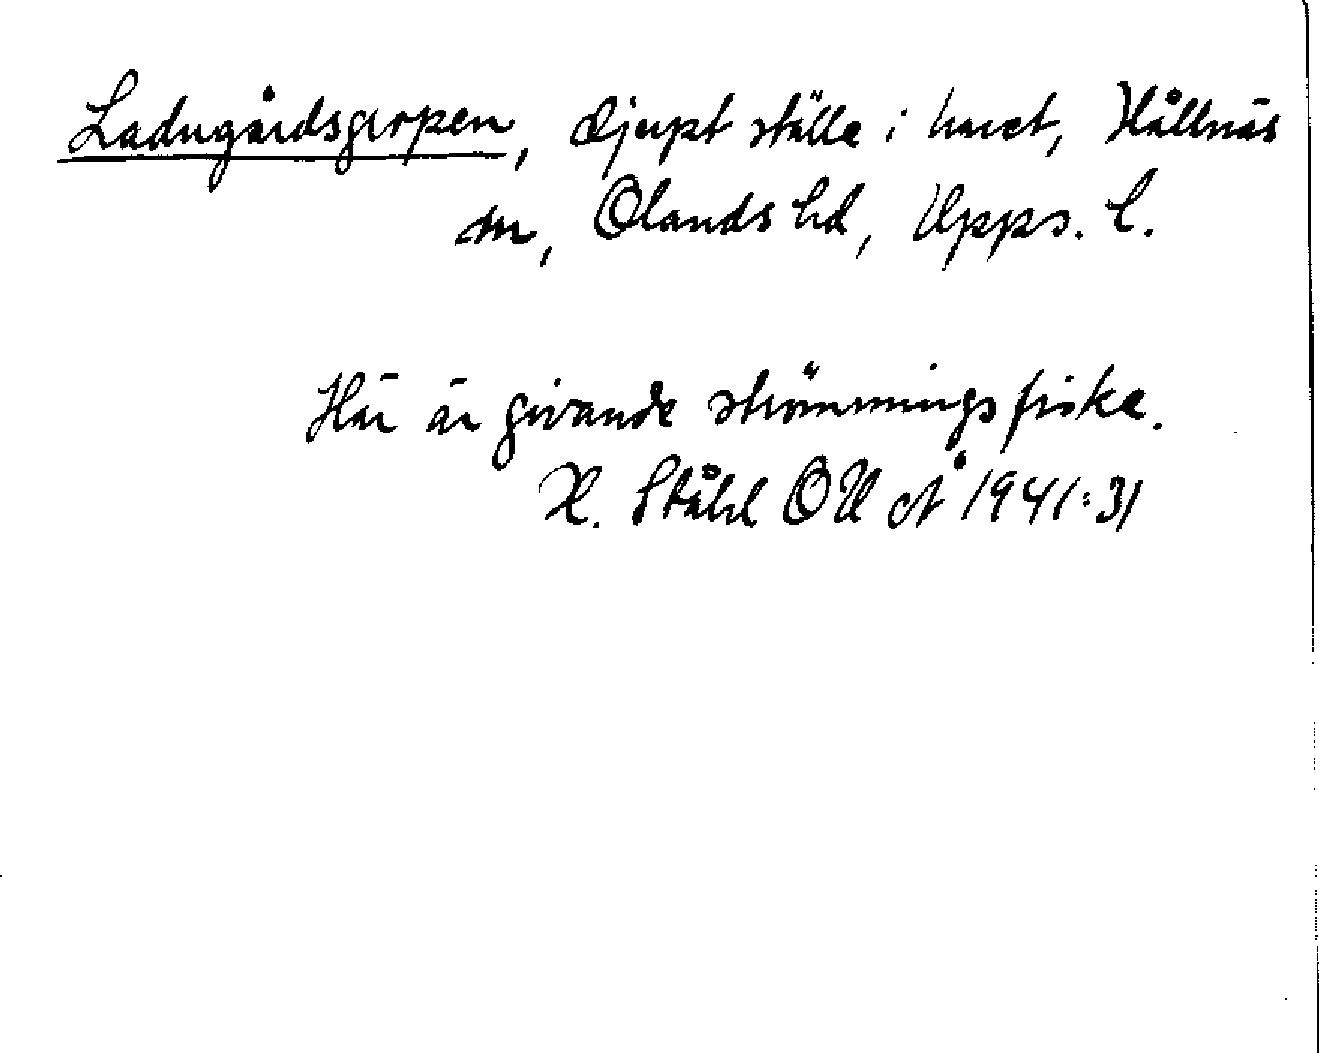 Ladugårdsgropen, djupt ställe i havet, Hållnäs
sn, Olands hd, Upps. l.
Här är givande strömmingsfiske.
H. Ståhl OU Å 1941:31